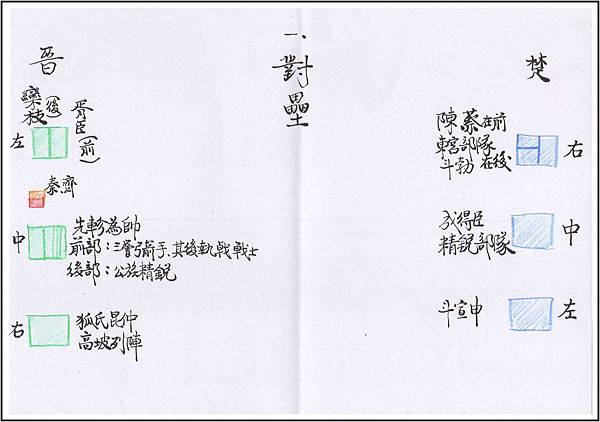 一、對壘
晉
欒枝(後)
胥臣(前)
左
秦齊
中
先軫為帥
前部：三層弓箭手、其後執戟戰士
後部：公族精銳
右
狐氏昆仲
高坡列陣
楚
陳蔡在前
東宮部隊
斗勃在後
右
成得臣
精銳部隊
中
斗宣申
左